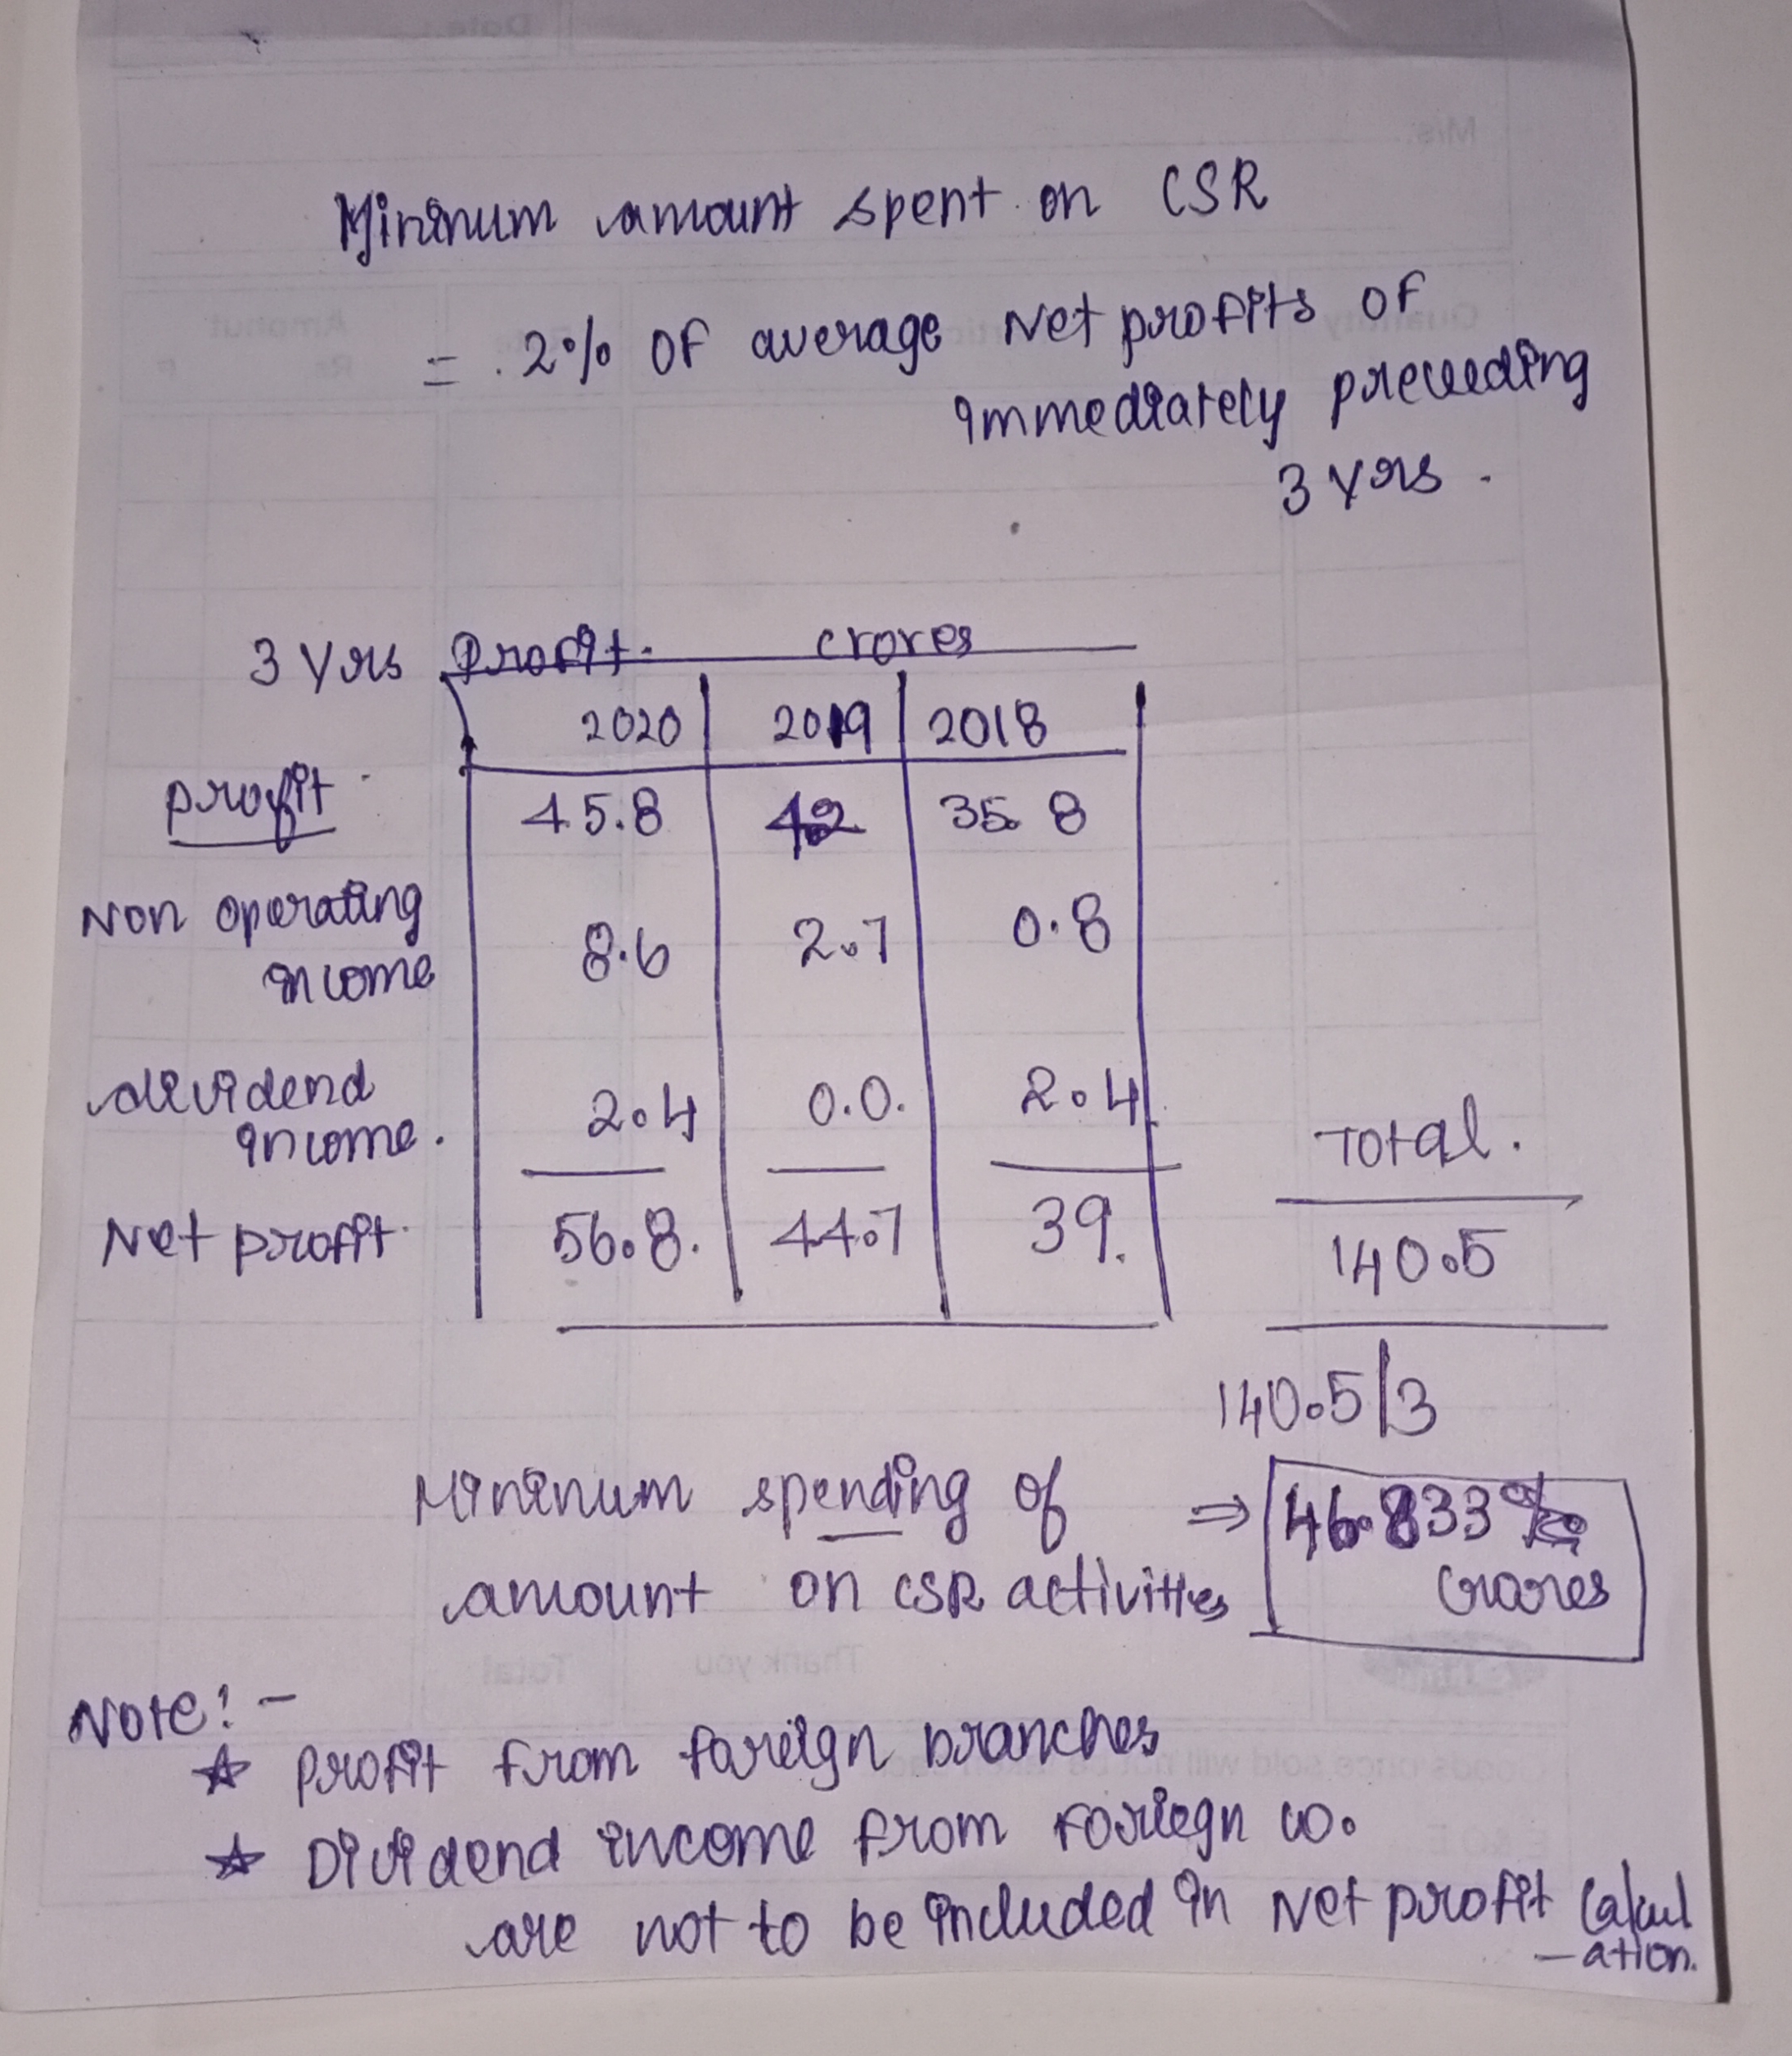 Minimum amount spent on CSR
= 2% of average Net profits of
immediately preceeding
3 Yrs.
3 Yrs Profit. crores
2020 2019 2018
profit 45.8 42 35.8
Non operating
income 8.6 2.7 0.8
dividend
income. 2.4 0.0. 2.4
Total.
Net profit. 56.8. 44.7 39. 140.5
140.5/3
Mininum spending of ⇒ 46.833
amount on CSR activities crores
Note:-
☆ Profit from foreign branches
☆ Dividend income from Foriegn co.
are not to be included in Net profit Calcul
-ation.